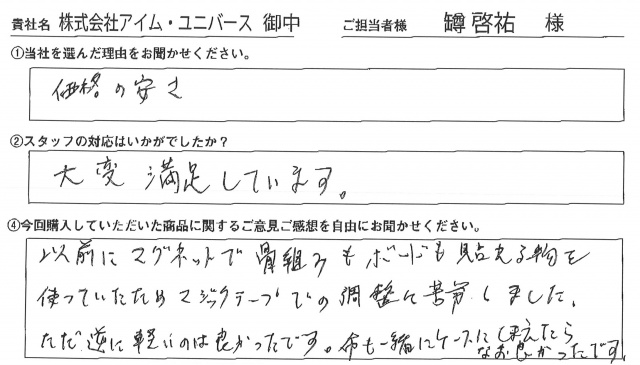 貴社名 株式会社アイム・ユニバース 御中 ご担当者様 鱒 啓祐 様
①当社を選んだ理由をお聞かせください。
価格の安さ
②スタッフの対応はいかがでしたか？
大変満足しています。
④今回購入していただいた商品に関するご意見ご感想を自由にお聞かせください。
以前にマグネットで骨組みもボードも貼れる物を
使っていたためマジックテープでの調整に苦労しました。
ただ逆に軽いのは良かったです。布も一緒にケースにしまえたら
なお良かったです。